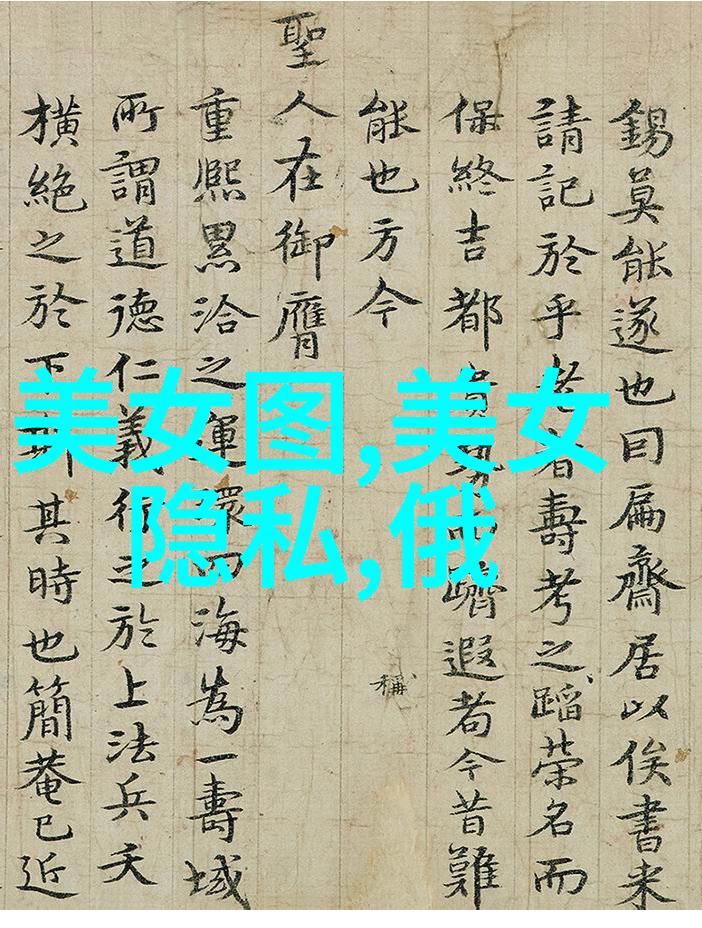 錫莫能遂也曰扁齋居以俟書来
請記於乎考者壽考之蹈荣名而
保終吉都貴躋遐者今昔難
能也方今
稱
聖人在御膺
重熙累洽之運環四海為一壽域
所謂道德仁義行之於上法兵夭
橫絶之於下斯其時也簡菴已近
美女图,美女
隐私,俄